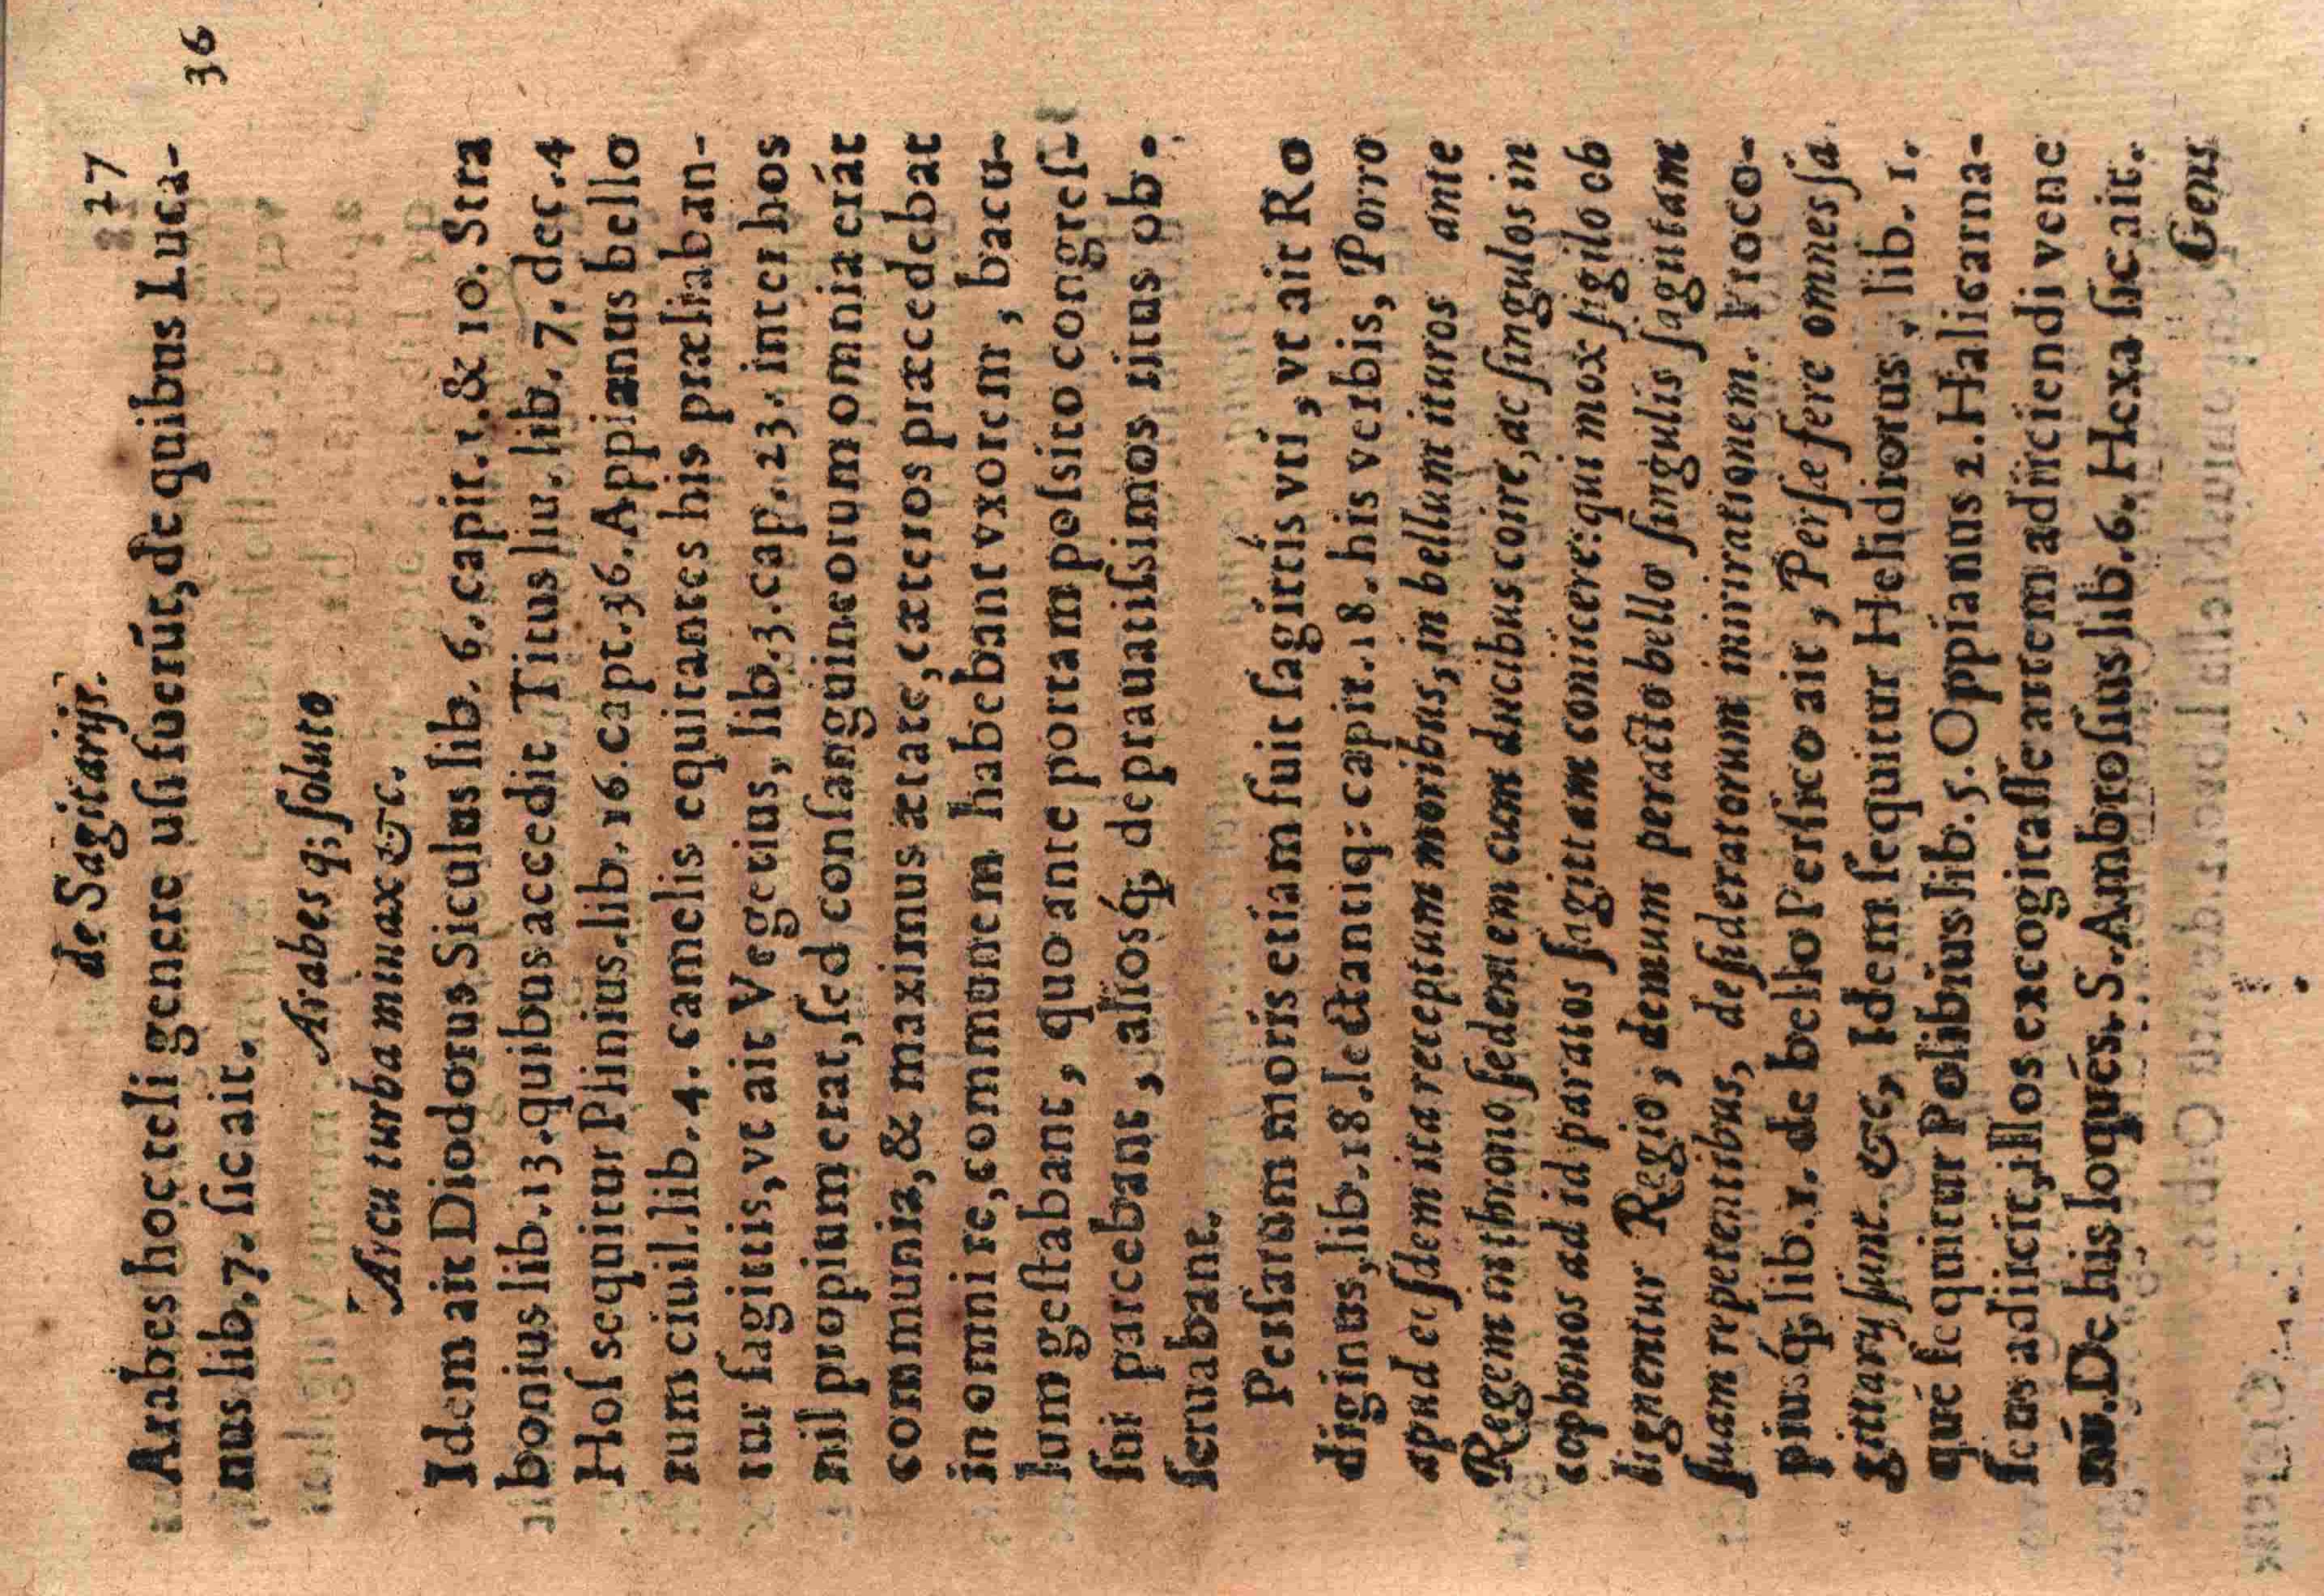 de Sagitarijs. 27
36
Arabes hoc teli genere usi fuerūt, de quibus Luca-
nus lib. 7. sic ait.
Arabes q; soluto
Arcu turba minax &c.
Idem ait Diodorus Siculus lib. 6. capit. 1. & 10. Stra
bonius lib. 13. quibus accedit Titus liu. lib. 7. dec. 4
Hos sequitur Plinius. lib. 16. capt. 36. Appianus bello
rum ciuil. lib. 4. camelis equitantes his præliaban-
tur sagittis, vt ait Vegetius, lib. 3. cap. 23. inter hos
nil propium erat, sed consanguineorum omnia erāt
communia, & maximus ætate, cæteros præcedebat
in omni re, communem habebant vxorem, bacu-
lum gestabant, quo ante portam posito congres-
sui parcebant, aliosq́; deprauatissimos ritus ob-
seruabant.
Persarum moris etiam fuit sagittis vti, vt ait Ro
diginus, lib. 18. lectantiq: capit. 18. his verbis, Porro
apud eosdem ita receptum moribus, in bellum ituros ante
Regem in throno sedem em cum ducibus coire, ac singulos in
cophinos ad id paratos sagittam coniicere: qui mox sigilo ob
signentur Regio; demum peracto bello singulis sagittam
suam repetentibus, desideratorum inirirationem. Proco-
piusq́; lib. 1. de bello Persico ait, Persæ fere omnes sa
gittarij sunt. &c, Idem sequitur Helidiorus, lib. 1.
qué sequitur Polibius lib. 5. Oppianus 2. Halicarna-
seus adiicit, illos excogitasse artem adiiciendi vene
nū. De his loqués. S. Ambrosius lib. 6. Hexa sic ait.
Gens